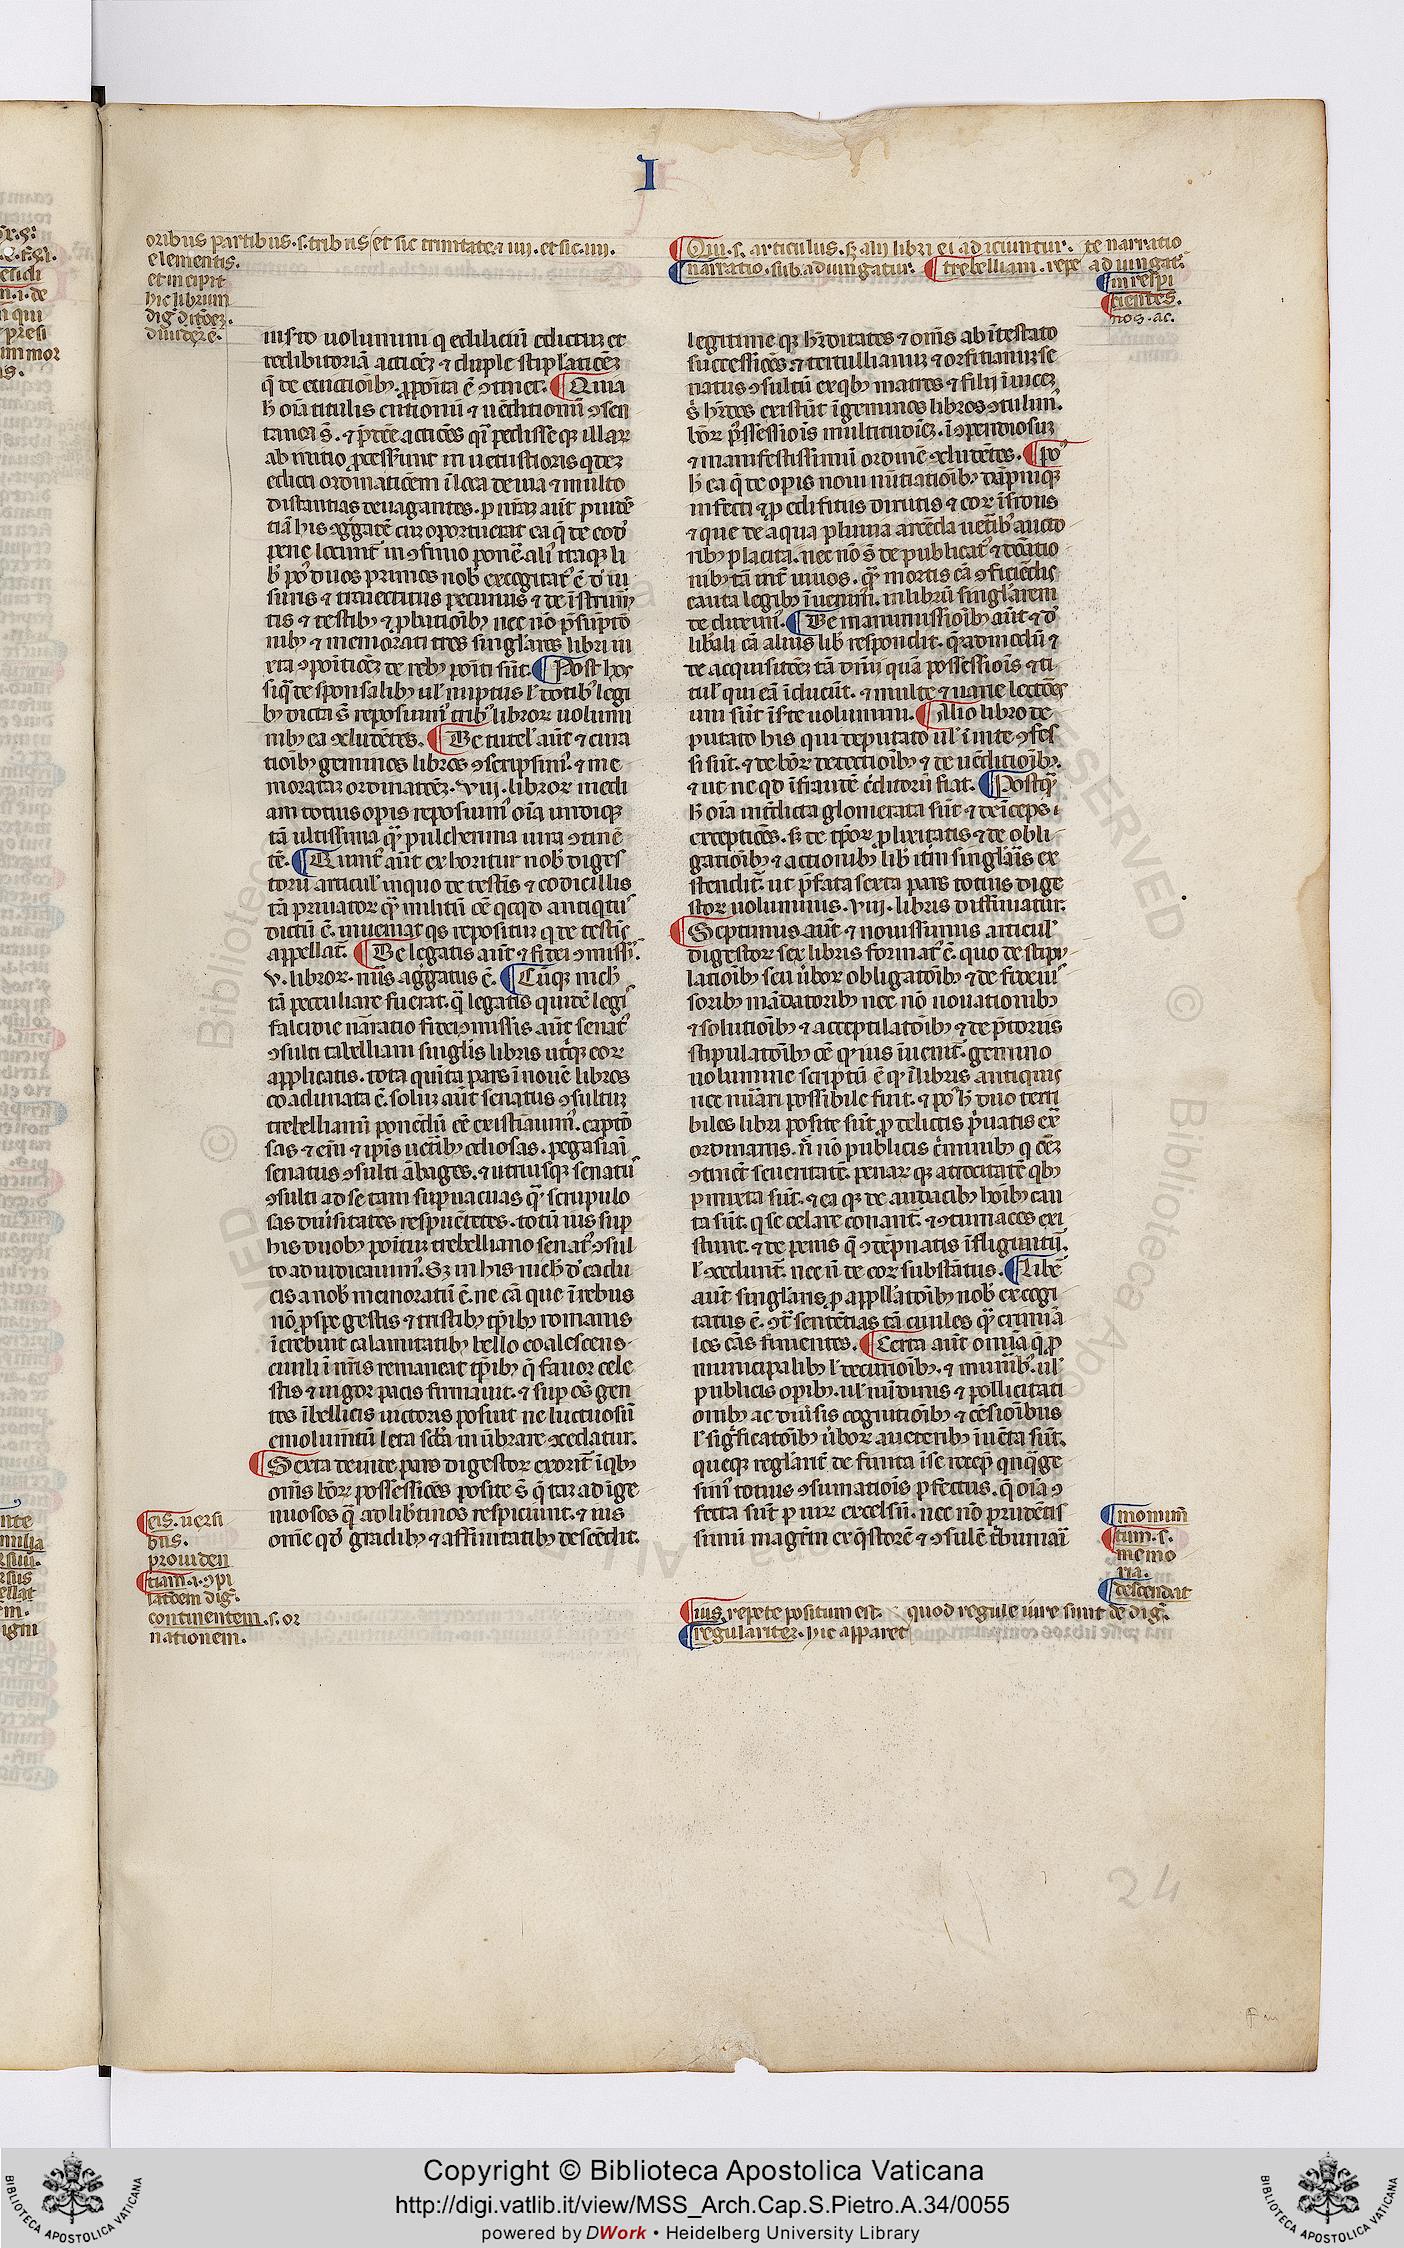 I
oribus partibus. s. tribus et sic trinitate. ⁊ iiii. et sic. iiii.
elementis.
et incipit
hic librum
diuidere.
Qui. s. articulus. sʒ alii libri ei adiciuntur.
te narratio
narratio. sub. adiungatur. trebelliani. repe
adiungat᷑.
in respi
cientes.
nos. ac.
iusto uolumini q edilicium edictuʒ et
redhibitoriā acticēʒ ⁊ duple stipl'aticēʒ
q̄ de euictioībꝫ. ꝓpoita ē ꝯtinet. Quia
h̄ oīa titulis emtionū ⁊ uēditionū ꝯsen
tanea s̄. ⁊ p̄dcē acticēs q̄si pedisse q̨ illaꝝ
ab initio ꝓcesserunt in uetustioris qdeʒ
edicti ordinaticēm ī loca deuia ⁊ multo
distantias deuagantes. ꝑ nr̄aʒ aūt ꝓuidē
tiā his ꝯg̃gatē cuʒ oportuerat ea q̄ de eod'
pene locunt᷑ in ꝯfinio ponē. ali᷒ itaqꝫ li
b᷑ pꝰ duos primos nob̄ excogitat᷒ ē d' u
suris ⁊ traiectitiis pecuniis ⁊ de īstrum̄
tis ⁊ testibꝫ ⁊ ꝓbationībꝫ nec nō p̄suptō
nibꝫ ⁊ memorati tres singl'ares libri iu
xta ꝯpōiticēʒ de rebꝫ poiti sūt. Post hos
siq̄ de sponsalibꝫ ul' nuptiis l' dotibꝫ legi
bꝫ dicta s̄ reposuim᷒ tribꝫ libroꝝ uolumi
nibꝫ ea ꝯcludētes. De tutel' aūt ⁊ cura
tioībꝫ geminos libros ꝯscripsim᷒. ⁊ me
morataʒ ordinatcēʒ. viii. libroꝝ medi
am totius opis reposuim᷒ oīa undiqꝫ
tā utilissima q̄ꝫ pulcherrima iura ꝯtinē
tē. Quint᷒ aūt exhoritur nob̄ diges
toꝝ articul᷒ in quo de testīs ⁊ codicillis
tā priuatoꝝ q̄ꝫ militū oē qcqd antiqtu᷒
dictū ē. inueniat qs repositum q de testīs
appellat᷑. De legatis aūt ⁊ fidei ꝯmissis
v. libroꝝ. nūs aggatus ē. Cūqꝫ nich̄
tā peculiare fuerat. q̄ legatis quidē legi᷒
falcidie narratio fidei ꝯmissis aūt senat᷒
ꝯsulti t̄bellian singl̄is libris utriqꝫ eoꝝ
applicatis. tota quīta pars ī nouē libros
coadunata ē. soluʒ aūt senatus ꝯsultuʒ
trebellianū ponēdū ēē existīauim᷒. capto
sas ⁊ eīm ⁊ ip̄is uet̄ibꝫ odiosas. pegasiāi
senatus ꝯsulti ābages. ⁊ utriusqꝫ senatu᷒
ꝯsulti ad se tam supuacuas q̄ꝫ scrupulo
sas diu̾sitates respuētes. totū ius sup
his duobꝫ poitum trebelliano senat᷒ ꝯsul
to adiudicauim᷒. Sʒ in his nich̄ d' cadu
cis a nob̄ memoratū ē. ne cā que ī rebus
nō ꝓspe gestis ⁊ tristibꝫ tp̄ibꝫ romanis
īcrebuit calamitatibꝫ bello coalescens
ciuili ī nr̄is remaneat tp̄ibꝫ q̄ fauor cele
stis ⁊ uigor pacis firmauit. ⁊ sup oēs gen
tes ī bellicis uictoris posuit ne luctuosū
emolumtū leta sc̄la inūbrare ꝯcedatur.
Sexta deinde pars digestoꝝ exorit᷑ ī qbꝫ
oīmēs bōꝝ possessiōes posite s̄ q̄ tam ad ige
nuosos q̄ ad lib̄tinos respiciunt. ⁊ ius
omē qd' gradibꝫ ⁊ affinitatibꝫ descēdit.
legitime qꝫ h̄editates ⁊ oms ab ītestato
successiōes. ⁊ tertullianuʒ ⁊ orfitianuʒ se
natus ꝯsultū ex qbꝫ matres ⁊ filii īuiceʒ
s̄ h̄edes existūt ī geminos libros ꝯtulim᷒.
bōꝝ p̄ssessiois multitudīēʒ. ī ꝯpendiosuʒ
⁊ manifestissimū ordinē ꝯcludētes. Po᷒
h̄ ea q̄ de opis noui nūtiatioībꝫ dāpnisqꝫ
infecti ⁊ ꝓ edifitiis dirutis ⁊ eoꝝ īsidiis
⁊ que de aqua pluuia arcēda uet̄ibꝫ aucto
ribꝫ placita. nec nō s̄ de publicat᷒ ⁊ donatio
nibꝫ tā int̄ uiuos. q̄ꝫ mortis cā ꝯficiendis
cauta legibꝫ īuenim᷒. in librū singl'arem
deduxim᷒. De manumissioībꝫ aūt ⁊ d'
lib̄ali cā alius lib̄ respondit. q̄admodū ⁊
de acquisitōeʒ tā dn̄ii quā possessiois ⁊ ti
tul' qui eā īducūt. ⁊ multe ⁊ uarie lectōes
uni sūt īsite uolumini. Alio libro de
putato his qui deputato ul' ī iure ꝯfes
si sūt. ⁊ de bōꝝ detectioībꝫ ⁊ de uēditioībꝫ.
⁊ ut ne qd ī fraudē c̄ditorū fiat. Postq̄ꝫ
h̄ oīa īudicata glomerata sūt ⁊ deīceps ī
exceptioēs. ⁊ de tp̄oꝝ ꝓlixitatis ⁊ de obli
gatioībꝫ ⁊ actionibꝫ lib̄ itm singl'aris ex
tenditur. ut p̄fata sexta pars totius dige
stoꝝ uoluminis. viii. libris diffiniatur.
Septimus aūt ⁊ nouissimus articul᷒
digestoꝝ sex libris formatꝰ ē. quo de stipu
lationibꝫ seu ūboꝝ obligatoībꝫ ⁊ de fideius
soribꝫ mādatoribꝫ nec nō nouationibꝫ
⁊ solutioībꝫ ⁊ acceptilatoībꝫ ⁊ de p̄toriis
stipulatoībꝫ oē q ius īuenit᷑. gemino
uolumine scriptū ē q ī libris antiquis
nec nūari possibile fuit. ⁊ pꝰ h̄ duo terri
biles libri posite sūt ꝓ delictis p̄uatis ex̄
ordinariis. n̄ nō publicis c̄iminibꝫ q oēʒ
ꝯtinet seueritatē. penaꝝ qꝫ atrocitatē qbꝫ
ꝑmixta sūt. ⁊ ea qꝫ de audacibꝫ hoībꝫ cau
ta sūt. q se celare conant᷑. ⁊ ꝯtumaces exi
stunt. ⁊ de penis q̄ ꝯdēpnatis īfliguntu᷑.
l' ꝯcedunt᷑. nec n̄ de eoꝝ substātiis. Libē
aūt singlaris ꝓ appellatoībꝫ nob̄ excogi
tatus ē. ꝯt̄ sentētias tā ciuiles q̄ꝫ crimia
les cās finientes. Cetera aūt omīa q̄ ꝓ
municipalibꝫ l' decurioībꝫ. ⁊ munībꝫ. ul'
publicis opibꝫ. ul' nūdinis ⁊ pollicitati
onibꝫ ac diu̾sis cognitioībꝫ ⁊ cēsioībus
l' sig̃ficatoībꝫ ūboꝝ aucteribꝫ īuēta sūt.
queqꝫ regl'arit̄ de finita ī se recep. qnq̄ge
simꝰ totius ꝯsumatiois ꝑfectus. q̄ oīa ꝯ
fecta sūt ꝑ uiꝝ excelsū. nec nō prudētis
simū magrm ex q̄storē ⁊ ꝯsulē t̄bunianū
eis. uersi
bus.
prouiden
tiam. i. ꝯpi
latōem dig᷑.
continentem. s. or
nationem.
momum
tum. s.
memo
ria.
descendat
ius. repete positum est.
quod regule iure sunt de dig᷑.
regulariter. hic apparet
24
Copyright © Biblioteca Apostolica Vaticana
http://digi.vatlib.it/view/MSS_Arch.Cap.S.Pietro.A.34/0055
powered by DWork • Heidelberg University Library
BIBLIOTECA APOSTOLICA VATICANA
BIBLIOTECA APOSTOLICA VATICANA